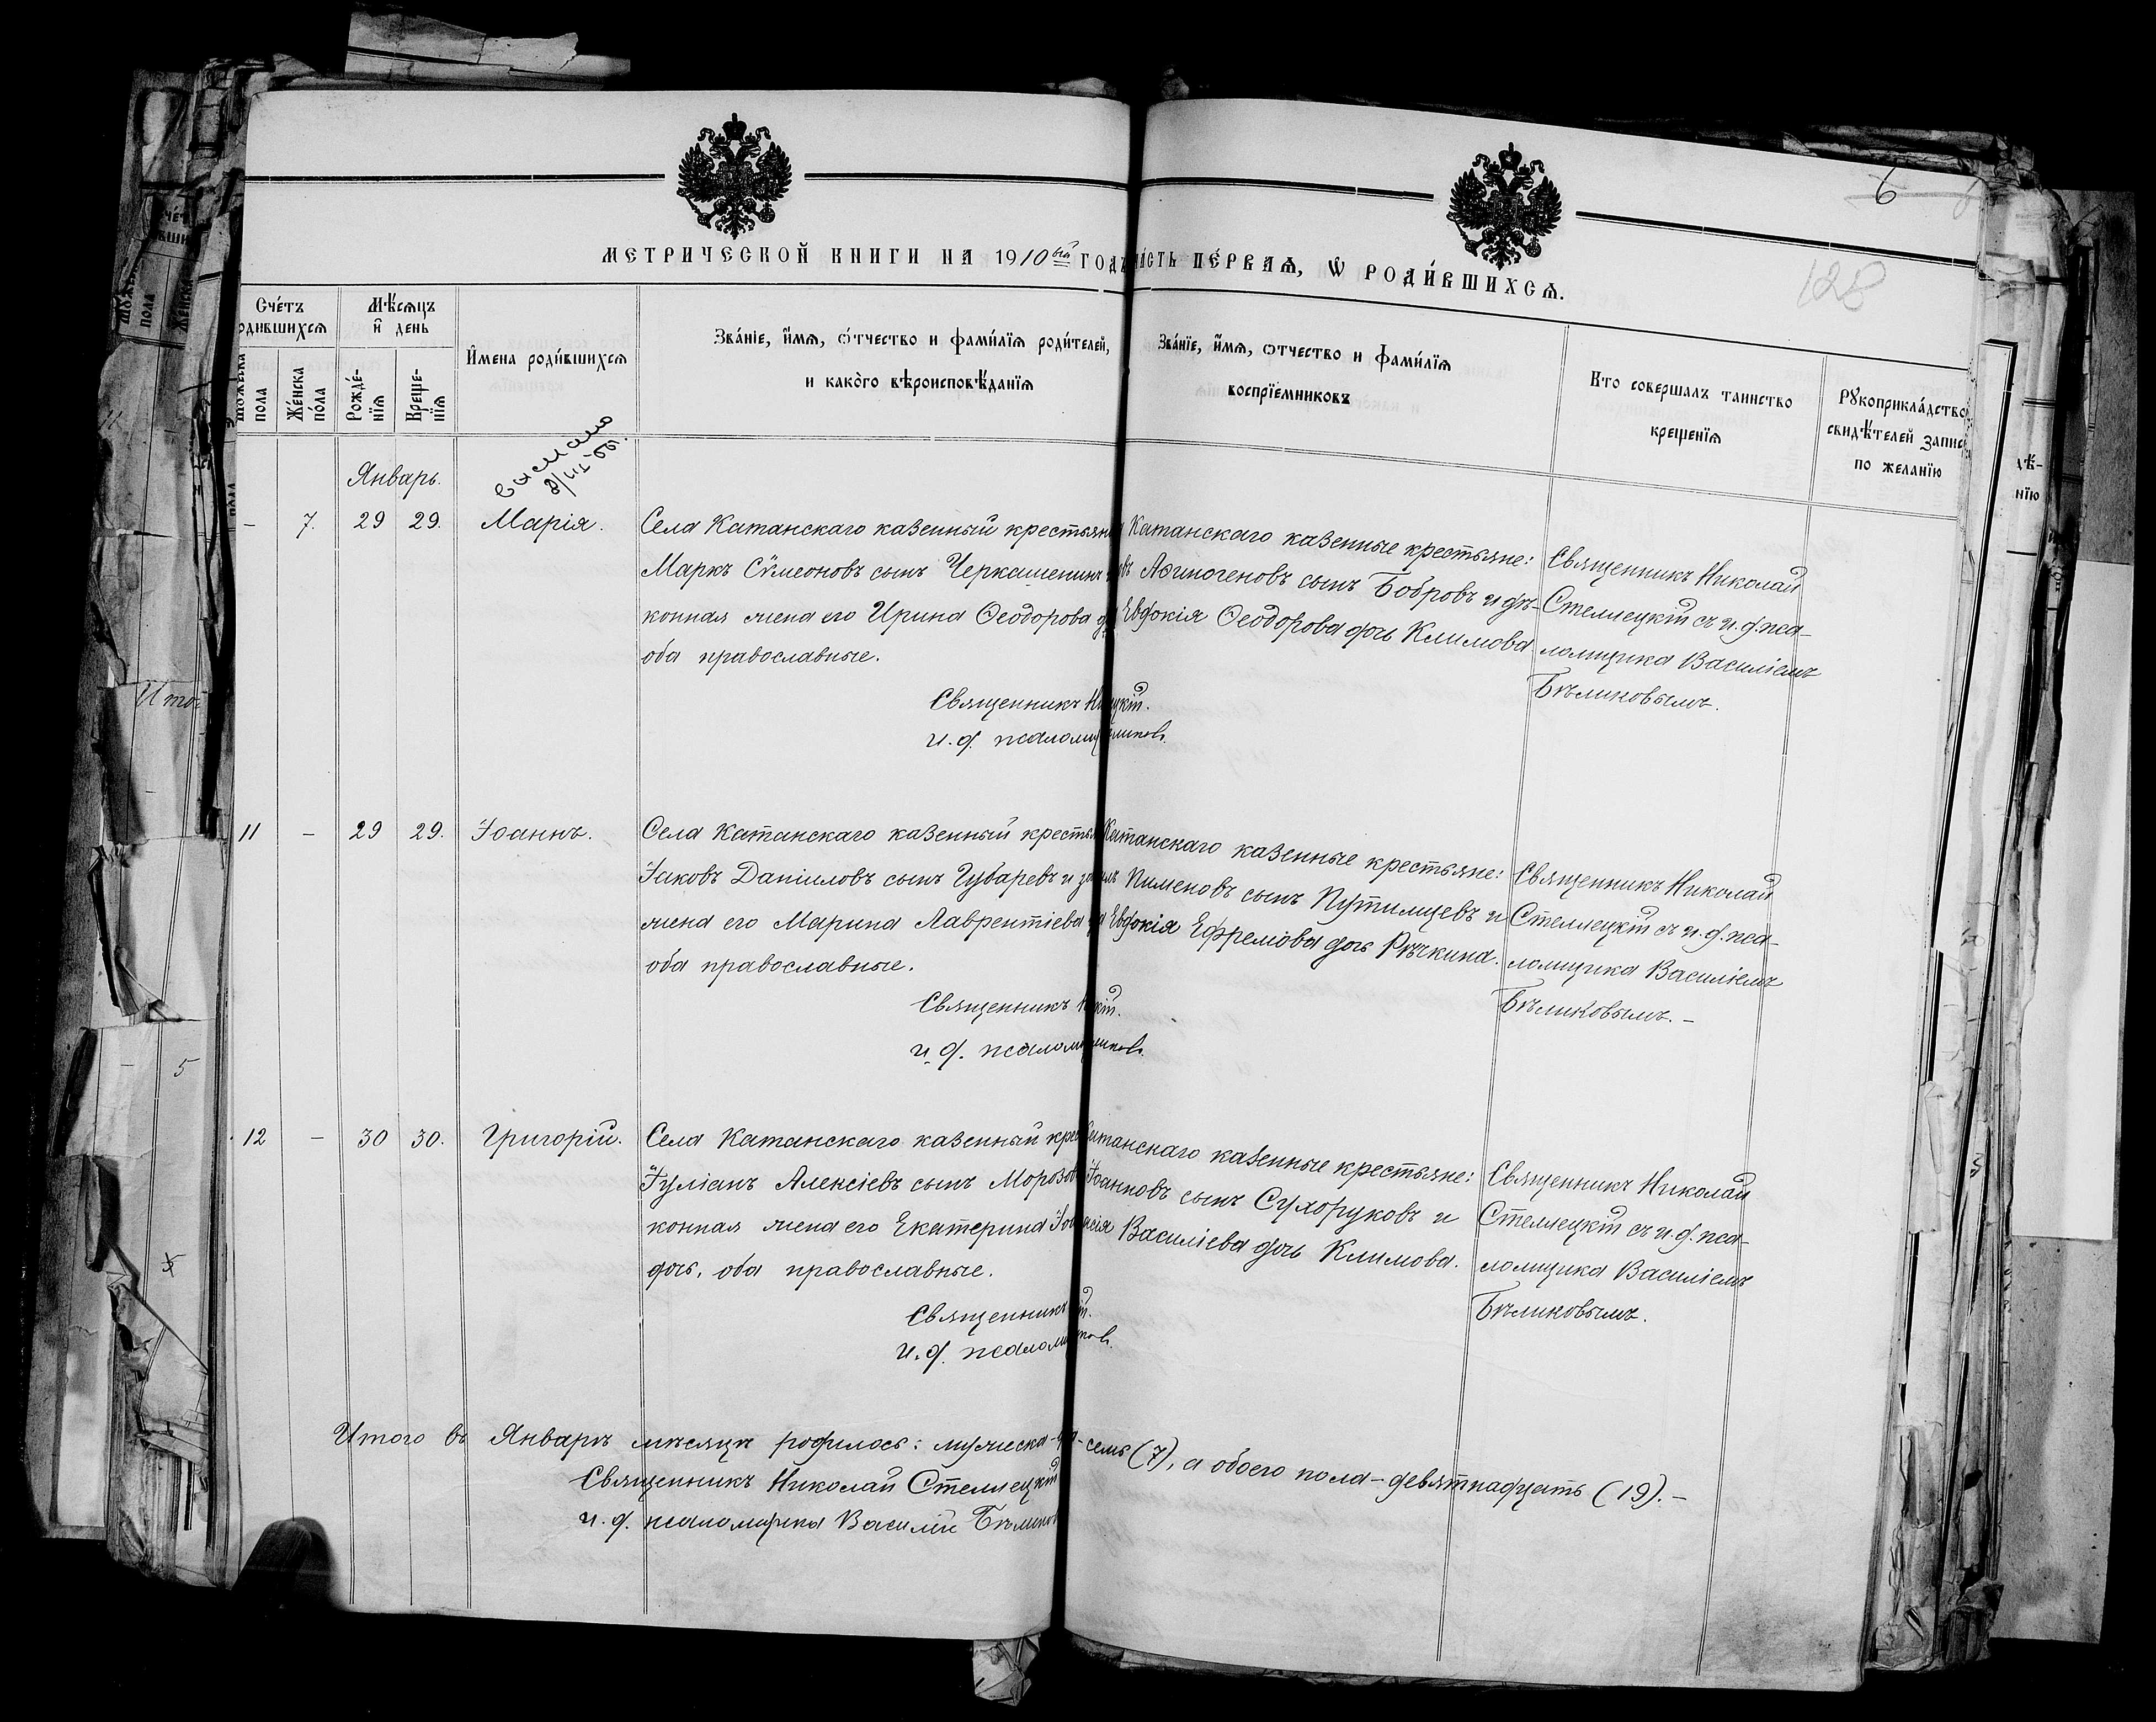 6
128
МЕТРИЧЕСКОЙ КНИГИ НА 1910ый ГОДЪ
ЧАСТЬ ПЕ́РВАѦ, Ѡ҆ РОДИ́ВШИХСѦ.
Сче́тъ
родившихсѧ
Мѣ́сѧцъ
и҆ день
И҆мена роди́вшихсѧ
Зва́нїе, и҆́мѧ, ѻ҆́тчество и фами́лїѧ роди́телей,
и како́го вѣроисповѣ́данїѧ
Зва́нїе, и҆́мѧ, ѻтчество и фами́лїѧ
воспрїе́мниковъ
Кто совершалъ таинство
крещенїѧ
Рꙋкоприкла́дство
свидѣ́телей запис
по желанїю
пола
Же́нска
по́ла
Рожде́-
нїѧ
Креще-
нїѧ
Январь.
– 7. 29 29. Марія.
Села Катанскаго казенный крестьян
Маркъ Сѵмеоновъ сынъ Черкашенинъ
конная жена его Ирина Ѳеодорова
оба православные.
Священникъ
и.д. псалом
Катанскаго казенные крестьяне:
Аѳиногеновъ сынъ Бобровъ и дѣ-
Евдокія Ѳеодорова дочь Климова
Священникъ Николай
Стеллецкій съ и.д. пса-
ломщика Василіемъ
Бѣликовымъ.
11 – 29 29. Іоаннъ.
Села Катанскаго казенный кресть
Іаковъ Даніиловъ сынъ Губаревъ и за
жена его Марина Лаврентіева
оба православные.
Священникъ
и.д. псалом
Катанскаго казенные крестьяне:
Пименовъ сынъ Путилцевъ и
Евдокія Ефремова дочь Рѣчкина.
Священникъ Николай
Стеллецкій съ и.д. пса-
ломщика Василіемъ
Бѣликовымъ. –
12 – 30 30. Григорій.
Села Катанскаго казенный кре
Іуліанъ Алексіевъ сынъ Морозов
конная жена его Екатерина
дочь, оба православные.
Священникъ
и.д. псалом
Катанскаго казенные крестьяне:
Іоанновъ сынъ Сухоруковъ и
Василіева дочь Климова.
Священникъ Николай
Стеллецкій съ и.д. пса-
ломщика Василіемъ
Бѣликовымъ.
Итого въ Январѣ мѣсяцѣ родилось: мужеска-
семь (7), а обоего пола – девятнадцать (19). –
Священникъ Николай Стеллецкій
и.д. псаломщика Василій Бѣликов